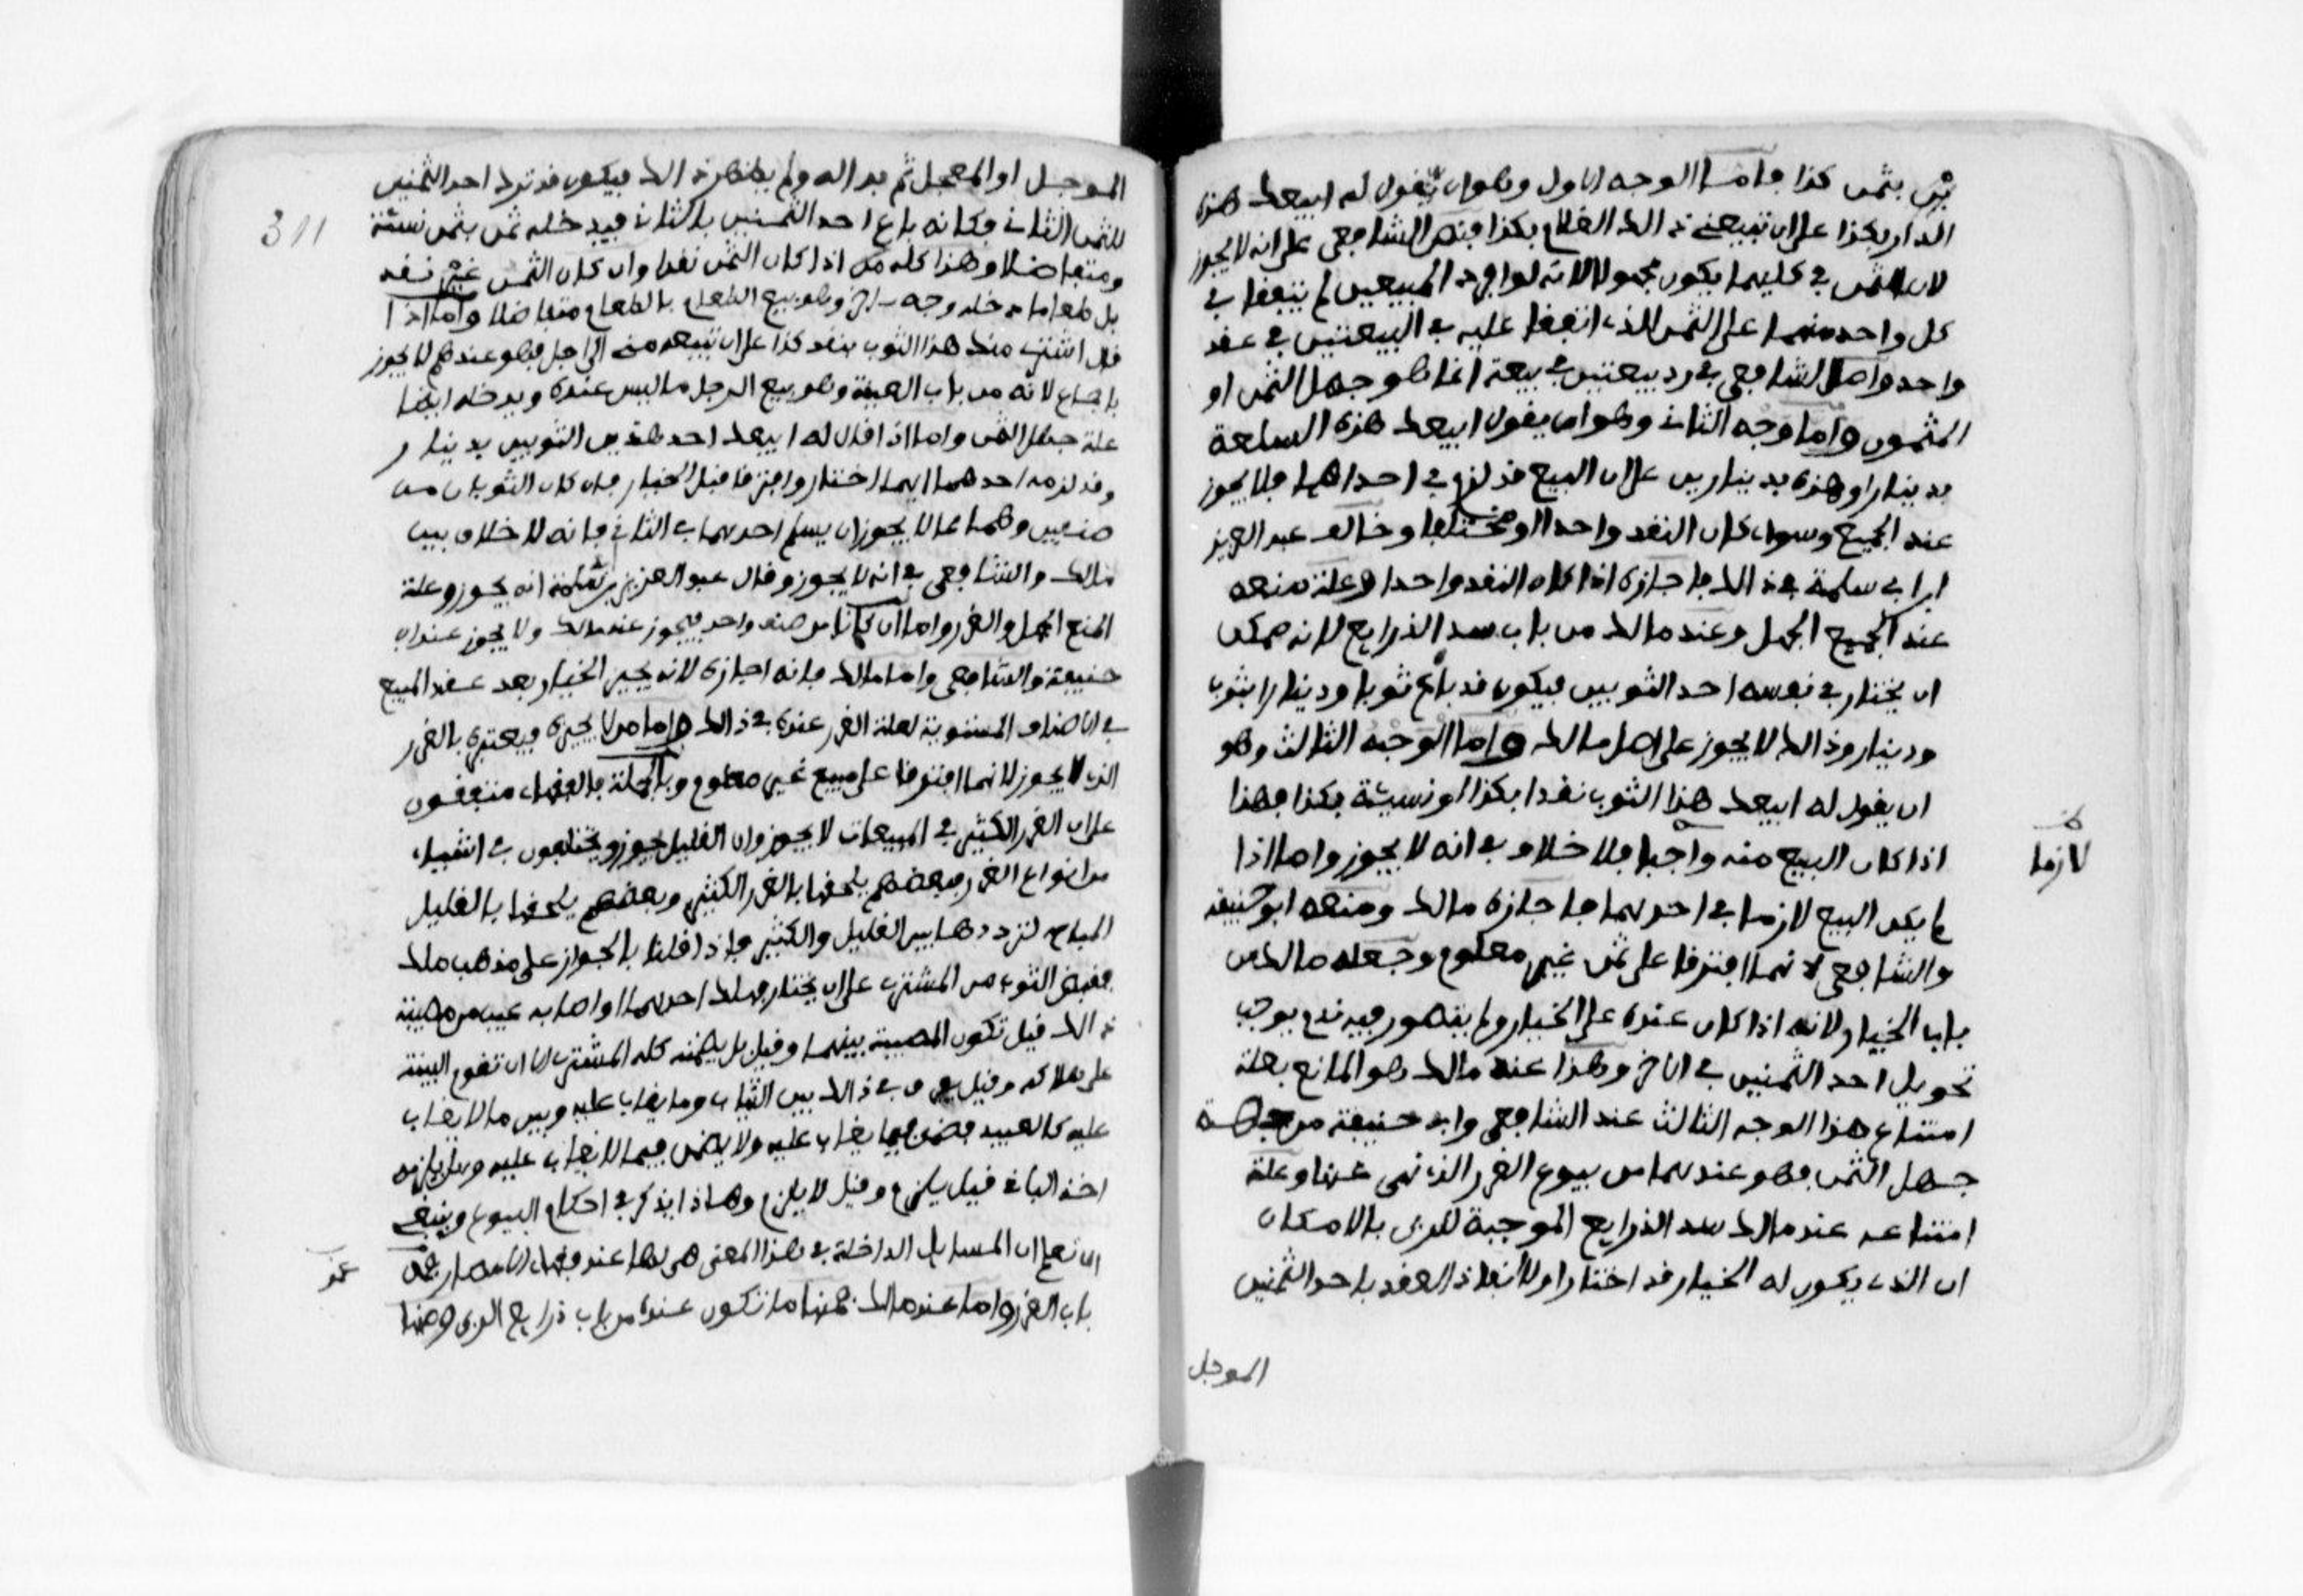 بثمن كذا فاما الوجه الاول وهو ان يقول له ابيعك هذه
الدار بكذا على ان تبيعنى ذالك الغلام بكذا فنص الشافعى على انه لا يجوز
لان الثمن فى كليهما يكون مجهولا لانه لو افرد المبيعين لم يتفقا فى
كل واحد منهما على الثمن الذى اتفقا عليه فى البيعتين فى عقد
واحد واصل الشافعى فى رد بيعتين فى بيعة انما هو جهل الثمن او
المثمون واما وجه الثانى وهو ان يقول ابيعك هذه السلعة
بدينار او هذه بدينارين على ان البيع قد لزم فى احداهما فلا يجوز
عند الجميع وسواء كان النقد واحدا او مختلفا وخالف عبد العزيز
ابن ابى سلمة فى ذالك فاجازه اذا كان النقد واحدا وعلة منعه
عند الجميع الجهل وعند مالك من باب سد الذرايع لانه ممكن
ان يختار فى نفسه احد الثوبين فيكون قد باع ثوبا ودينارا بثوب
ودينار وذالك لا يجوز على اصل مالك واما الوجه الثالث وهو
ان يقول له ابيعك هذا الثوب نقدا بكذا او نسيئة بكذا فهذا
اذا كان البيع منه واجبا فلا خلاف فى انه لا يجوز واما اذا
لازما
لم يكن البيع لازما فى احدهما فاجازه مالك ومنعه ابو حنيفة
والشافعى لانهما افترقا على ثمن غير معلوم وجعله مالك من
باب الخيار لانه اذا كان عنده على الخيار ولم يتصور فيه ندم يوجب
تحويل احد الثمنين فى الاخر وهذا عند مالك هو المانع بعلة
امتناع هذا الوجه الثالث عند الشافعى وابى حنيفة من جهة
جهل الثمن فهو عندهما من بيوع الغرر الذى نهى عنها وعلة
امتناعه عند مالك سد الذرايع الموجبة للربى بالامكان
ان الذى يكون له الخيار قد اختار اولا انفاذ العقد باحد الثمنين
الموجل
311
الموجل او المعجل ثم بدا له ولم يظهر ذالك فيكون قد ترك احد الثمنين
للثمن الثانى فكانه باع احد الثمنين بالثانى فيدخله ثمن بثمن نسئة
ومتفاضلا وهذا كله اذا كان الثمن نقدا وان كان الثمن غير نقد
بل طعاما دخله وجه اخر وهو بيع الطعام بالطعام متفاضلا واما اذا
قال اشترى منك هذا الثوب بنقد كذا على ان تبيعه منى الى اجل فهو عندهم لا يجوز
باجماع لانه من باب العينة وهو بيع الرجل ما ليس عنده ويدخله ايضا
علة جهل الثمن واما اذا قال له ابيعك احد هذين الثوبين بدينار
وقد لزمه احدهما ايهما اختار وافترقا قبل الخيار فان كان الثوبان من
صنفين وهما مما لا يجوز ان يسلم احدهما فى الثانى فانه لا خلاف بين
مالك والشافعى فى انه لا يجوز وقال عبد العزيز بن سلمة انه يجوز وعلة
المنع الجهل والغرر واما ان كانا من صنف واحد فيجوز عند مالك ولا يجوز عند ابى
حنيفة والشافعى واما مالك فانه اجازه لانه يجيز الخيار بعد عقد المبيع
فى الاصناف المستوية لقلة الغرر عنده فى ذالك واما من لا يجيزه فيعتبره بالغرر
الذى لا يجوز لانهما افترقا على مبيع غير معلوم وبالجملة فالفقهاء متفقون
على ان الغرر الكثير فى المبيعات لا يجوز وان القليل يجوز ويختلفون فى اشياء
من انواع الغرر فبعضهم يلحقها بالغرر الكثير وبعضهم يلحقها بالقليل
المباح لترددها بين القليل والكثير فاذا قلنا بالجواز على مذهب مالك
فقبض الثوبين المشترى على ان يختار فهلك احدهما او اصابه عيب من مصيبة
ذالك قيل تكون المصيبة بينهما وقيل بل يضمنه كله المشترى الا ان تقوم البينة
على هلاكه وقيل يفرق فى ذالك بين الثياب وما يغاب عليه وبين ما لا يغاب
عليه كالعبيد فيضمن فيما يغاب عليه ولا يضمن فيما لا يغاب عليه وهل يلزمه
اخذ الباقى قيل يلزم وقيل لا يلزم وهذا يذكر فى احكام البيوع وينبغى
ان نعلم ان المسايل الداخلة فى هذا المعنى هى اما عند فقهاء الامصار فمن
باب الغرر واما عند مالك فمنها ما تكون عنده من باب ذرايع الربى ومنها